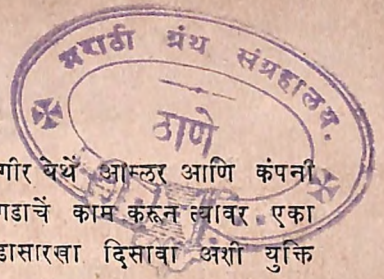 मराठी ग्रंथ संग्रहालय.
ठाणे
गीर येथें आम्लर आणि कंपनी
गडाचें काम करून त्यावर एका
डासारखा दिसावा अशी युक्ति